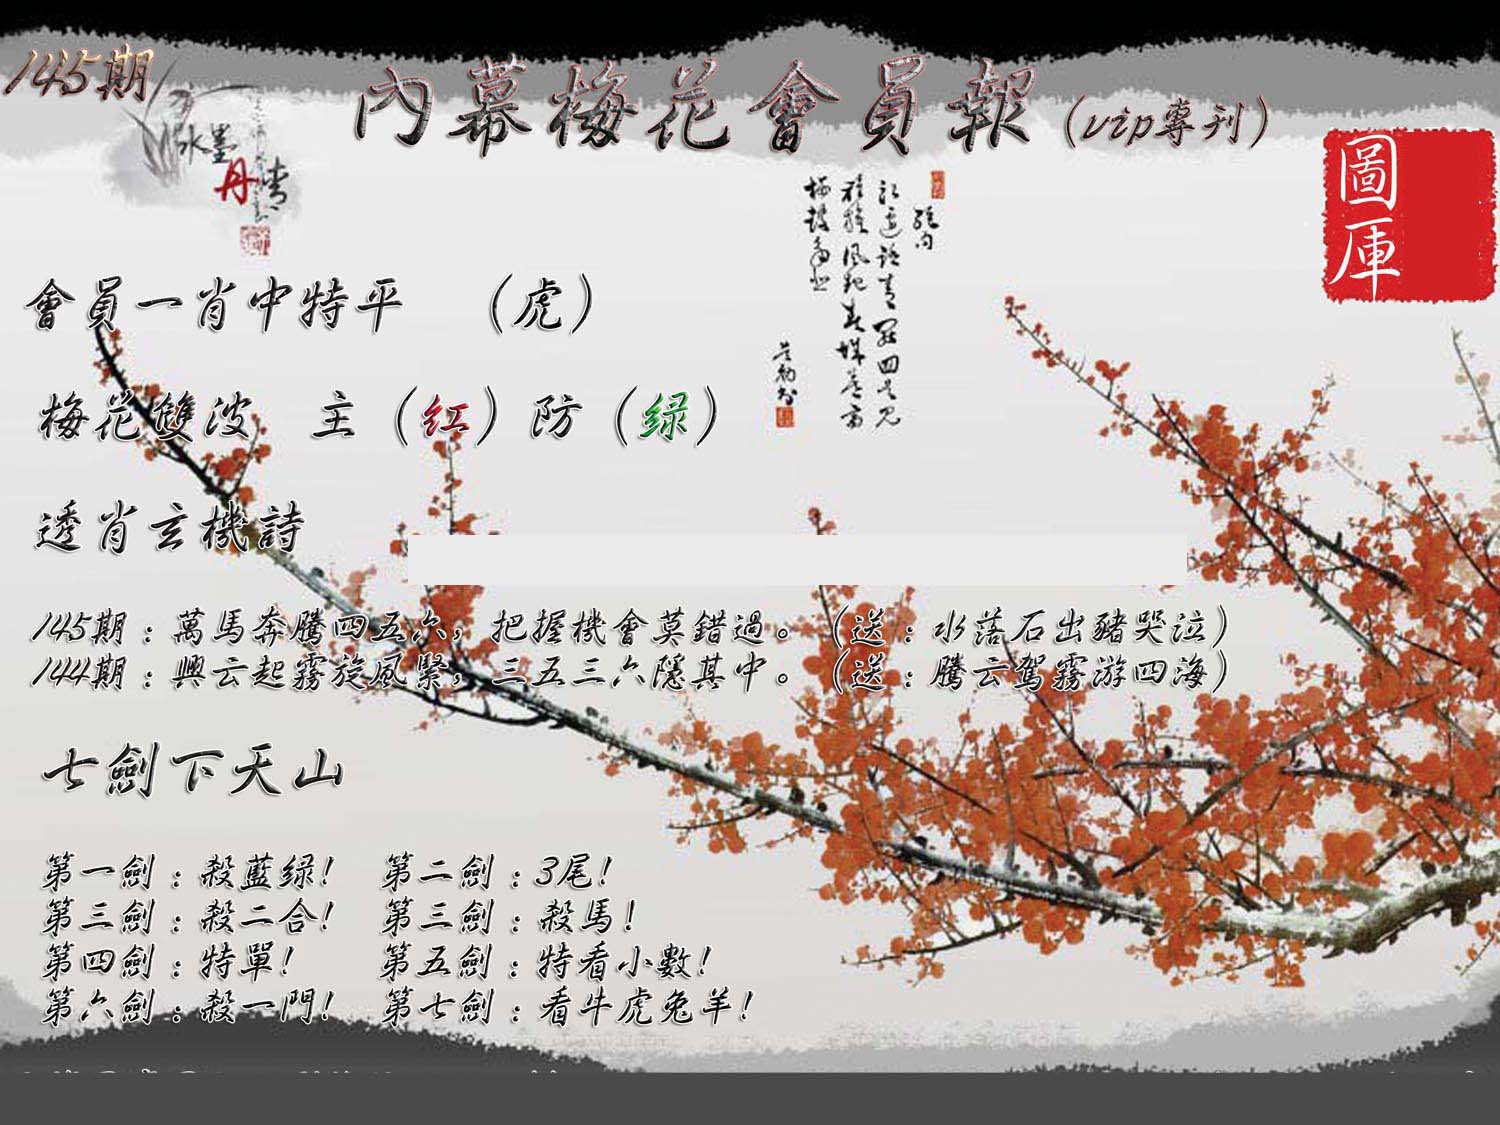 145期
內幕梅花會員報(vip專刊)
水墨
丹青
圖庫
會員一肖中特平 (虎)
梅花雙波 主(红)防(绿)
透肖玄機詩
145期:萬馬奔騰四五六,把握機會莫錯過。(送:水落石出豬哭泣)
144期:興云起霧旋風緊,三五三六隱其中。(送:騰云駕霧游四海)
七劍下天山
第一劍:殺藍绿! 第二劍:3尾!
第三劍:殺二合! 第三劍:殺馬!
第四劍:特單! 第五劍:特看小數!
第六劍:殺一門! 第七劍:看牛虎兔羊!